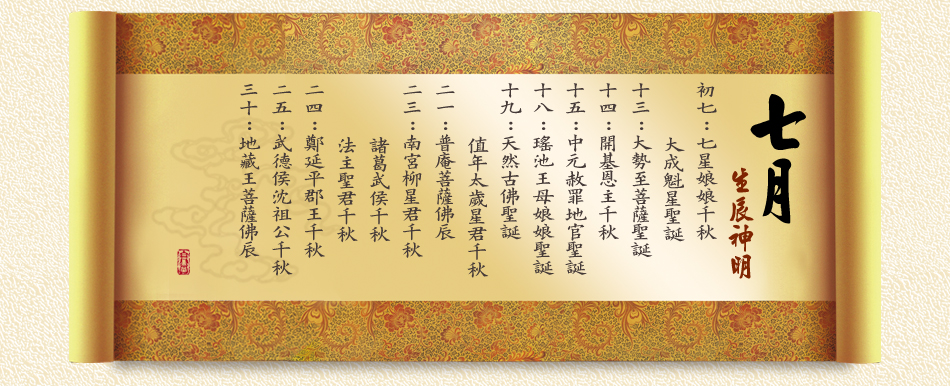 七月
生辰神明
初七：七星娘娘千秋
大成魁星聖誕
十三：大勢至菩薩聖誕
十四：開基恩主千秋
十五：中元赦罪地官聖誕
十八：瑤池王母娘娘聖誕
十九：天然古佛聖誕
值年太歲星君千秋
二一：普庵菩薩佛辰
二三：南宮柳星君千秋
諸葛武侯千秋
法主聖君千秋
二四：鄭延平郡王千秋
二五：武德侯沈祖公千秋
三十：地藏王菩薩佛辰